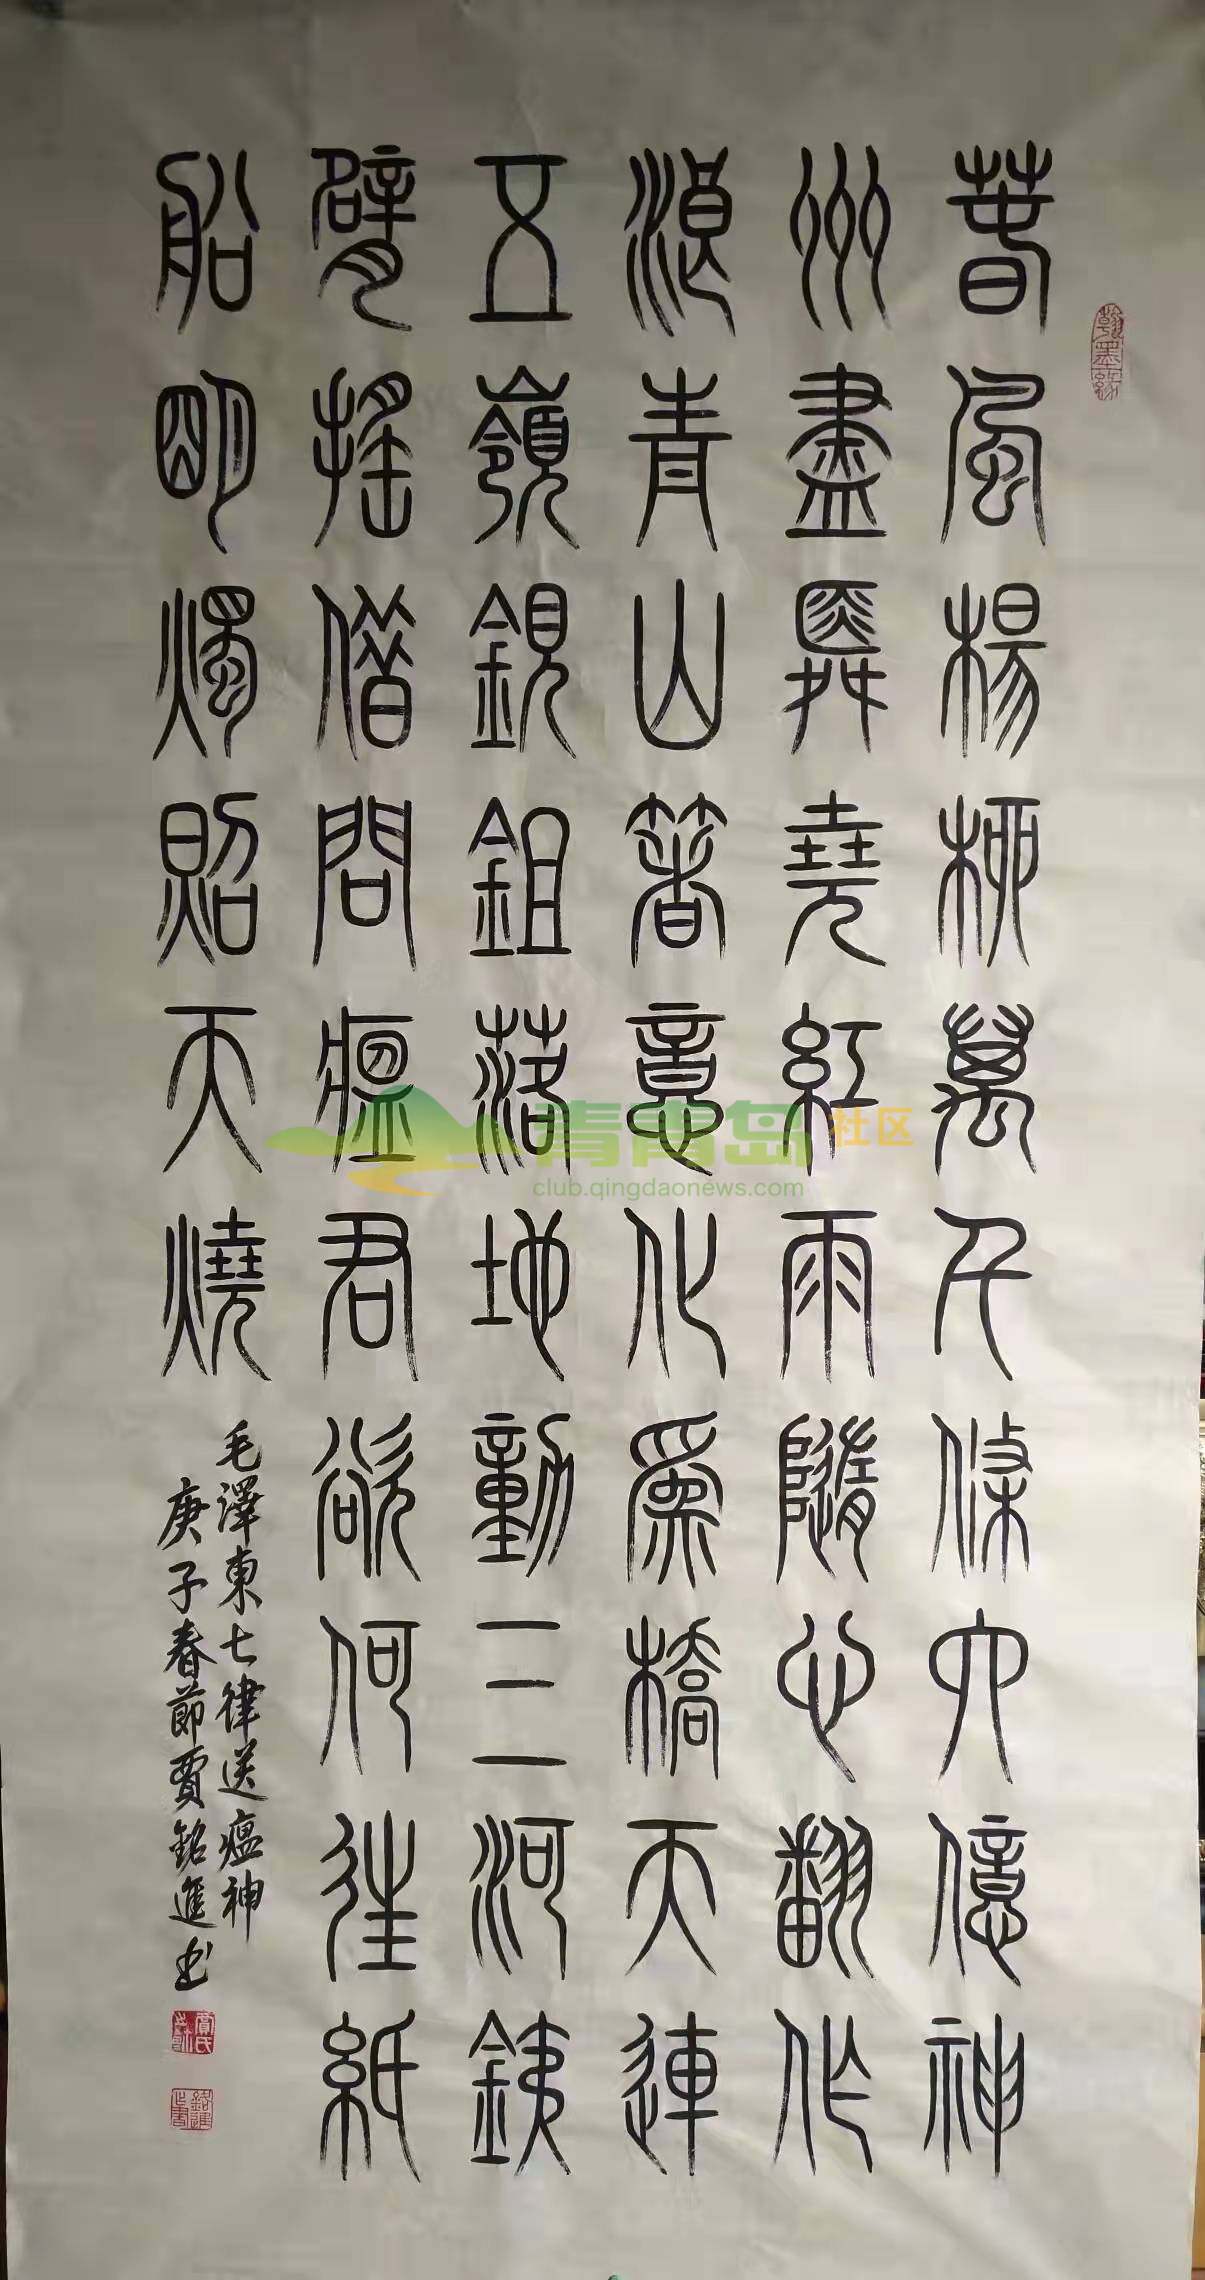 翰墨緣
春風楊柳萬千條六億神
州盡舜堯紅雨隨心翻作
浪青山箸意化為橋天連
五嶺銀鉏落地動三河銕
臂搖借問瘟君欲何往紙
船明燭照天燒
毛澤東七律送瘟神
庚子春節賈銘進书
青青岛社区
club.qingdaonews.com